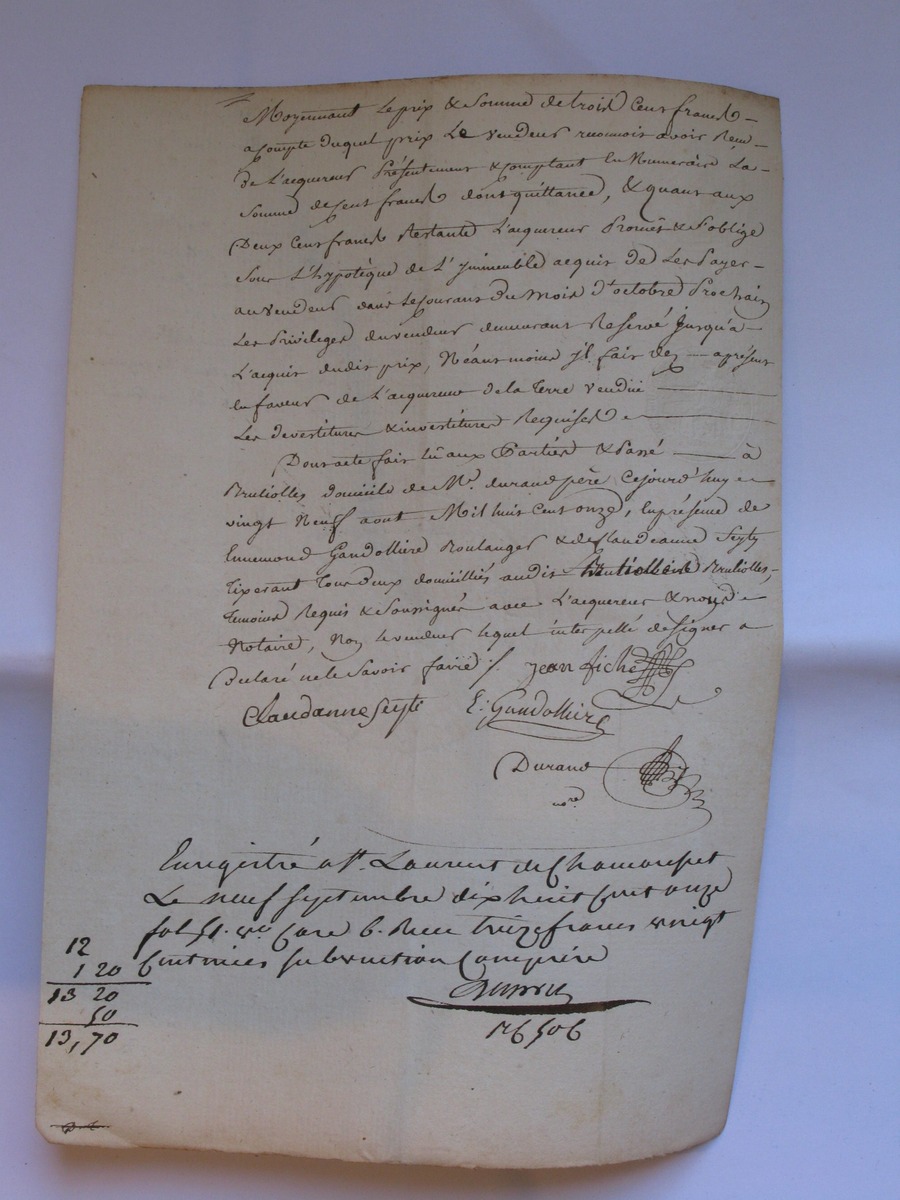 Moyennant Le prix & Somme de trois Cent francs —
a compte duquel prix Le vendeur reconnois avoir Reçu —
de L'acquereur Présentement & comptant En Numeraire La —
Somme de Cent francs dont quittance, & quant aux
Deux Cent francs Restants L'acquereur Promet & S'oblige
Sous L'hypotèque de L'immeuble acquis de Les Payer —
au vendeur dans Le Courant du Mois d'octobre Prochain
Les Privileges du vendeur demeurant Reservé Jusqu'a —
L'acquis dudit prix, Néantmoins il fait dez — apresent
En faveur de L'acquereur de la Terre vendüe —
Les devestitures & investitures Requises —
Dont acte fait lû aux Parties & Passé — à
Bruliolles domicile de Mr. durand père Cejourd'huy
vingt Neuf aout Mil huit Cent onze, En présence de
Ennemond Gandollière Boulanger & de Claudeanne Seyty
Tixerant Tous deux domiciliés audit Brulliolles,
Temoins Requis & Soussignés avec L'acquereur & nous
Notaire, Non le vendeur lequel interpellé de Signer a
Declaré ne le Savoir faire ./. jean fiché
Claudanne Seyti E. Gandollière
Durand
nore
Enregistré a St. Laurent de Chamousset
Le neuf septembre dix huit Cent onze
fol 51. vo Case 6. Reçu treize francs vingt
Centimes subvention Comprise
12
1 20
13 20
50
13,70